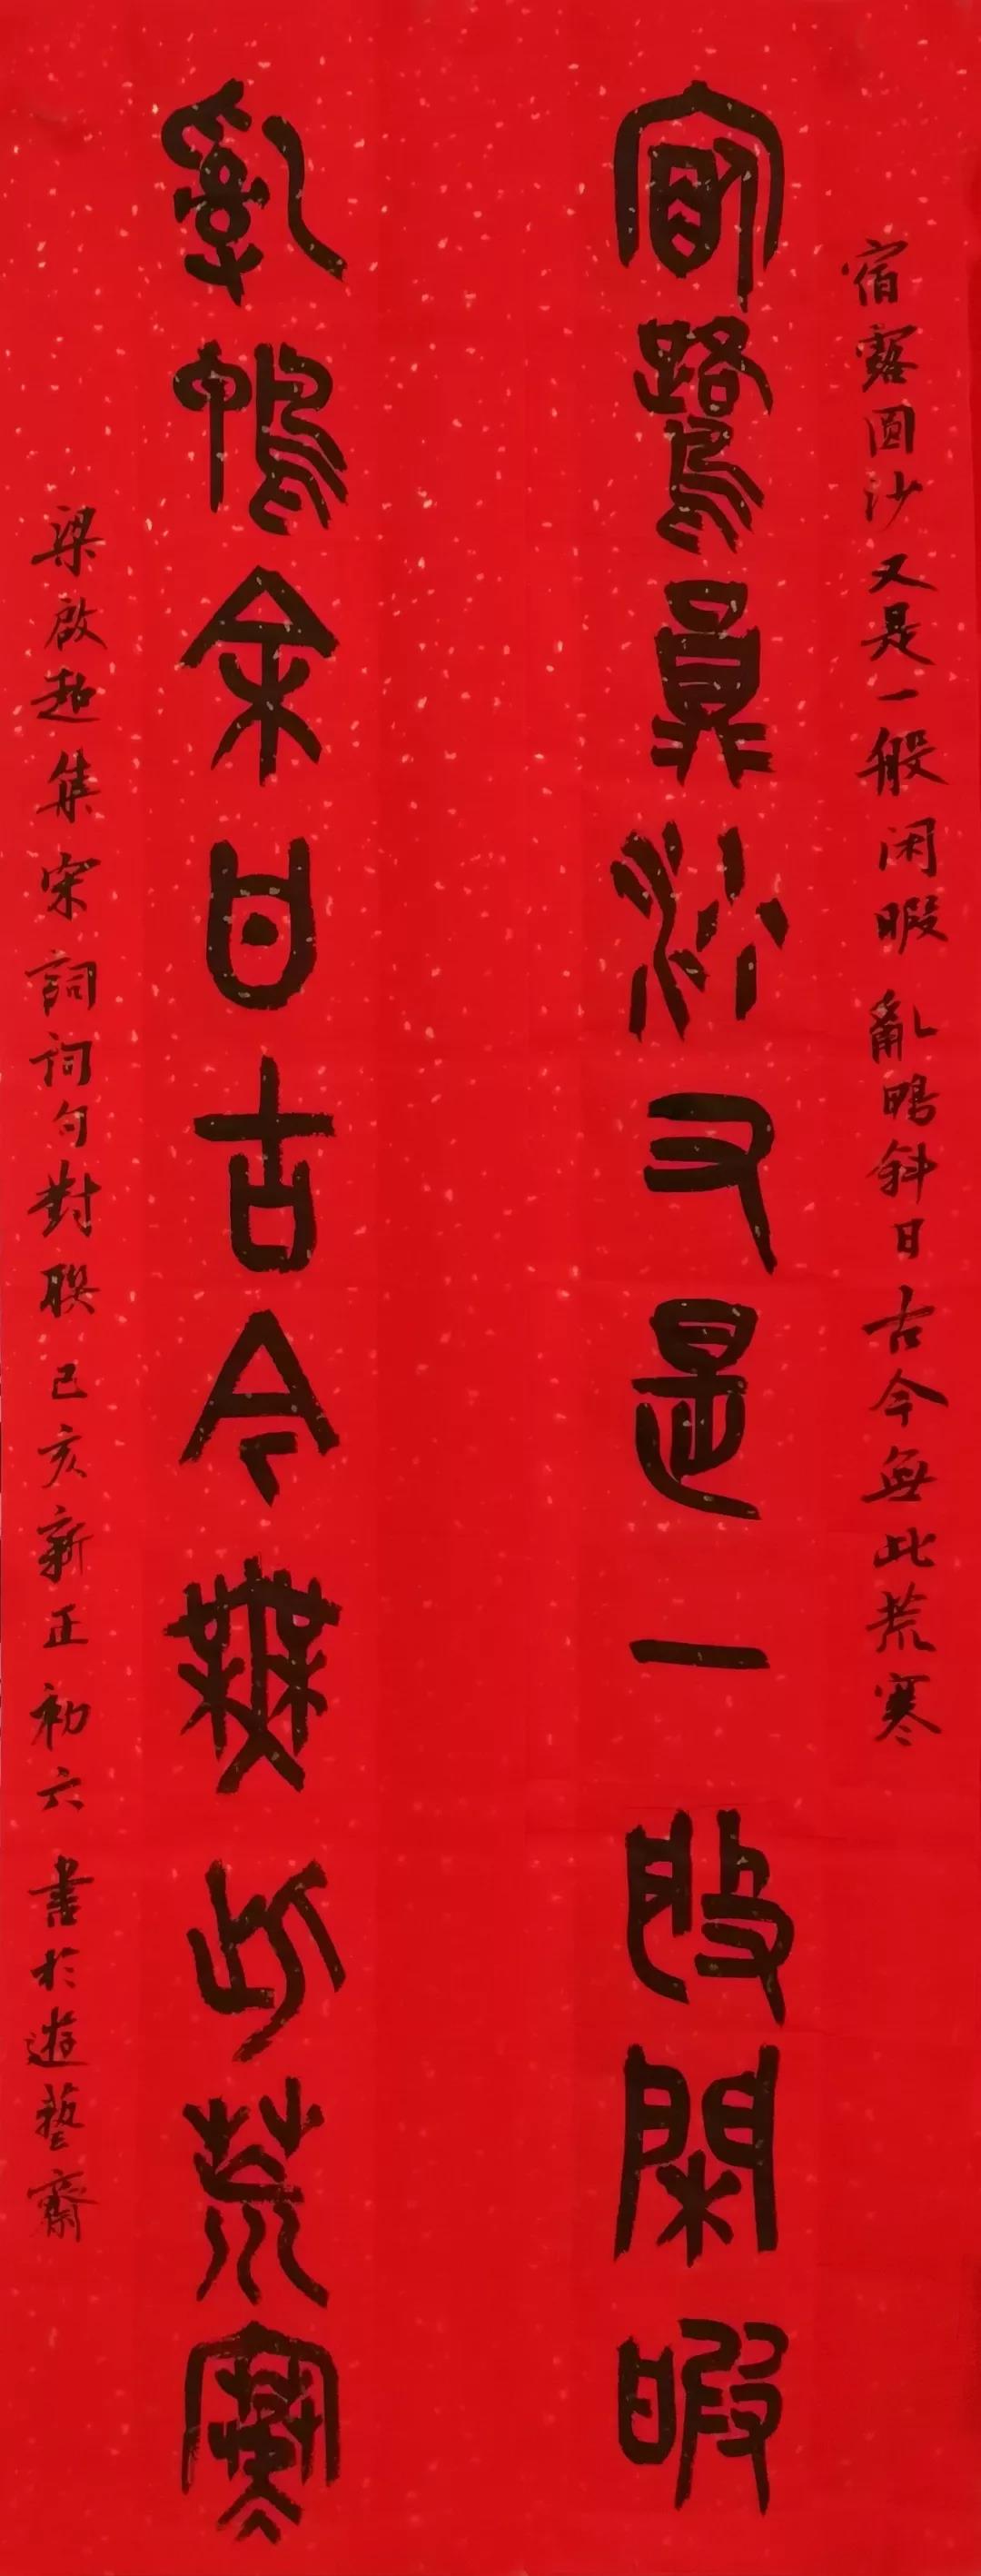 宿露圓沙又是一般闲暇 亂鴨斜日古今無此荒寒
宿鷺員沙又是一般閑暇
亂鴨余日古今無此荒寒
梁啟超集宋詞詞句對聯 己亥新正初六 書於遊藝齋